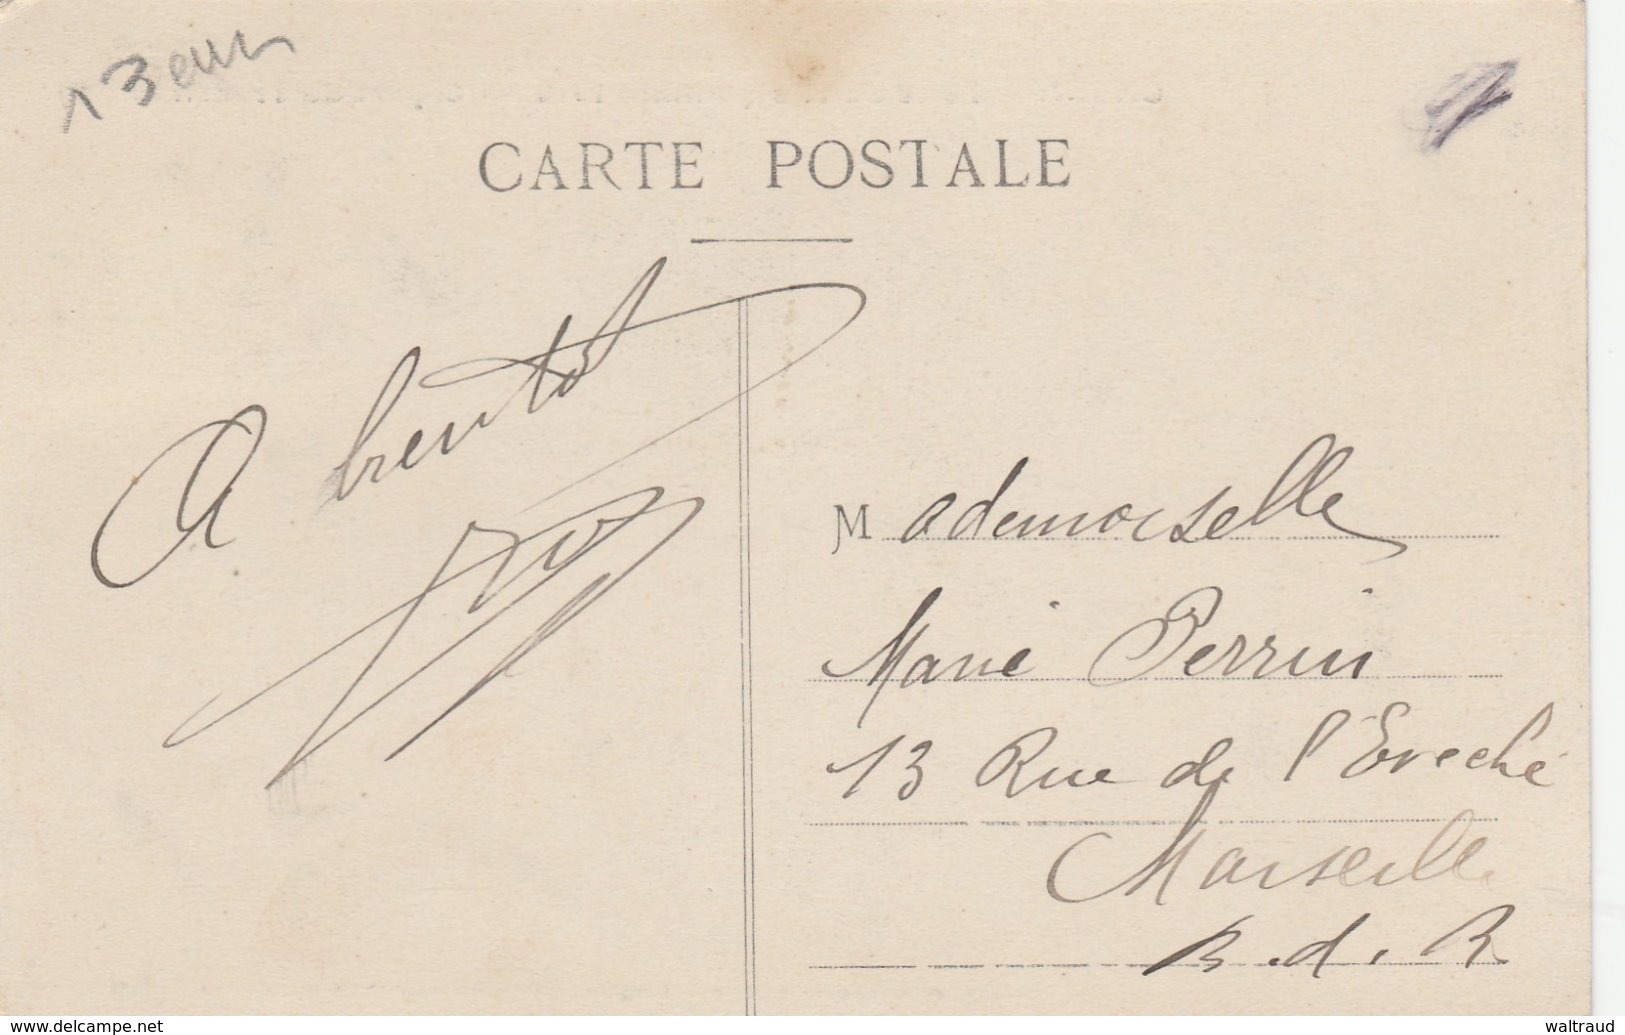 13 eur
CARTE POSTALE
A bientôt
Mademoiselle
Marie Perrin
13 Rue de l'Evêché
Marseille
B.d.R
www.delcampe.net
waltraud